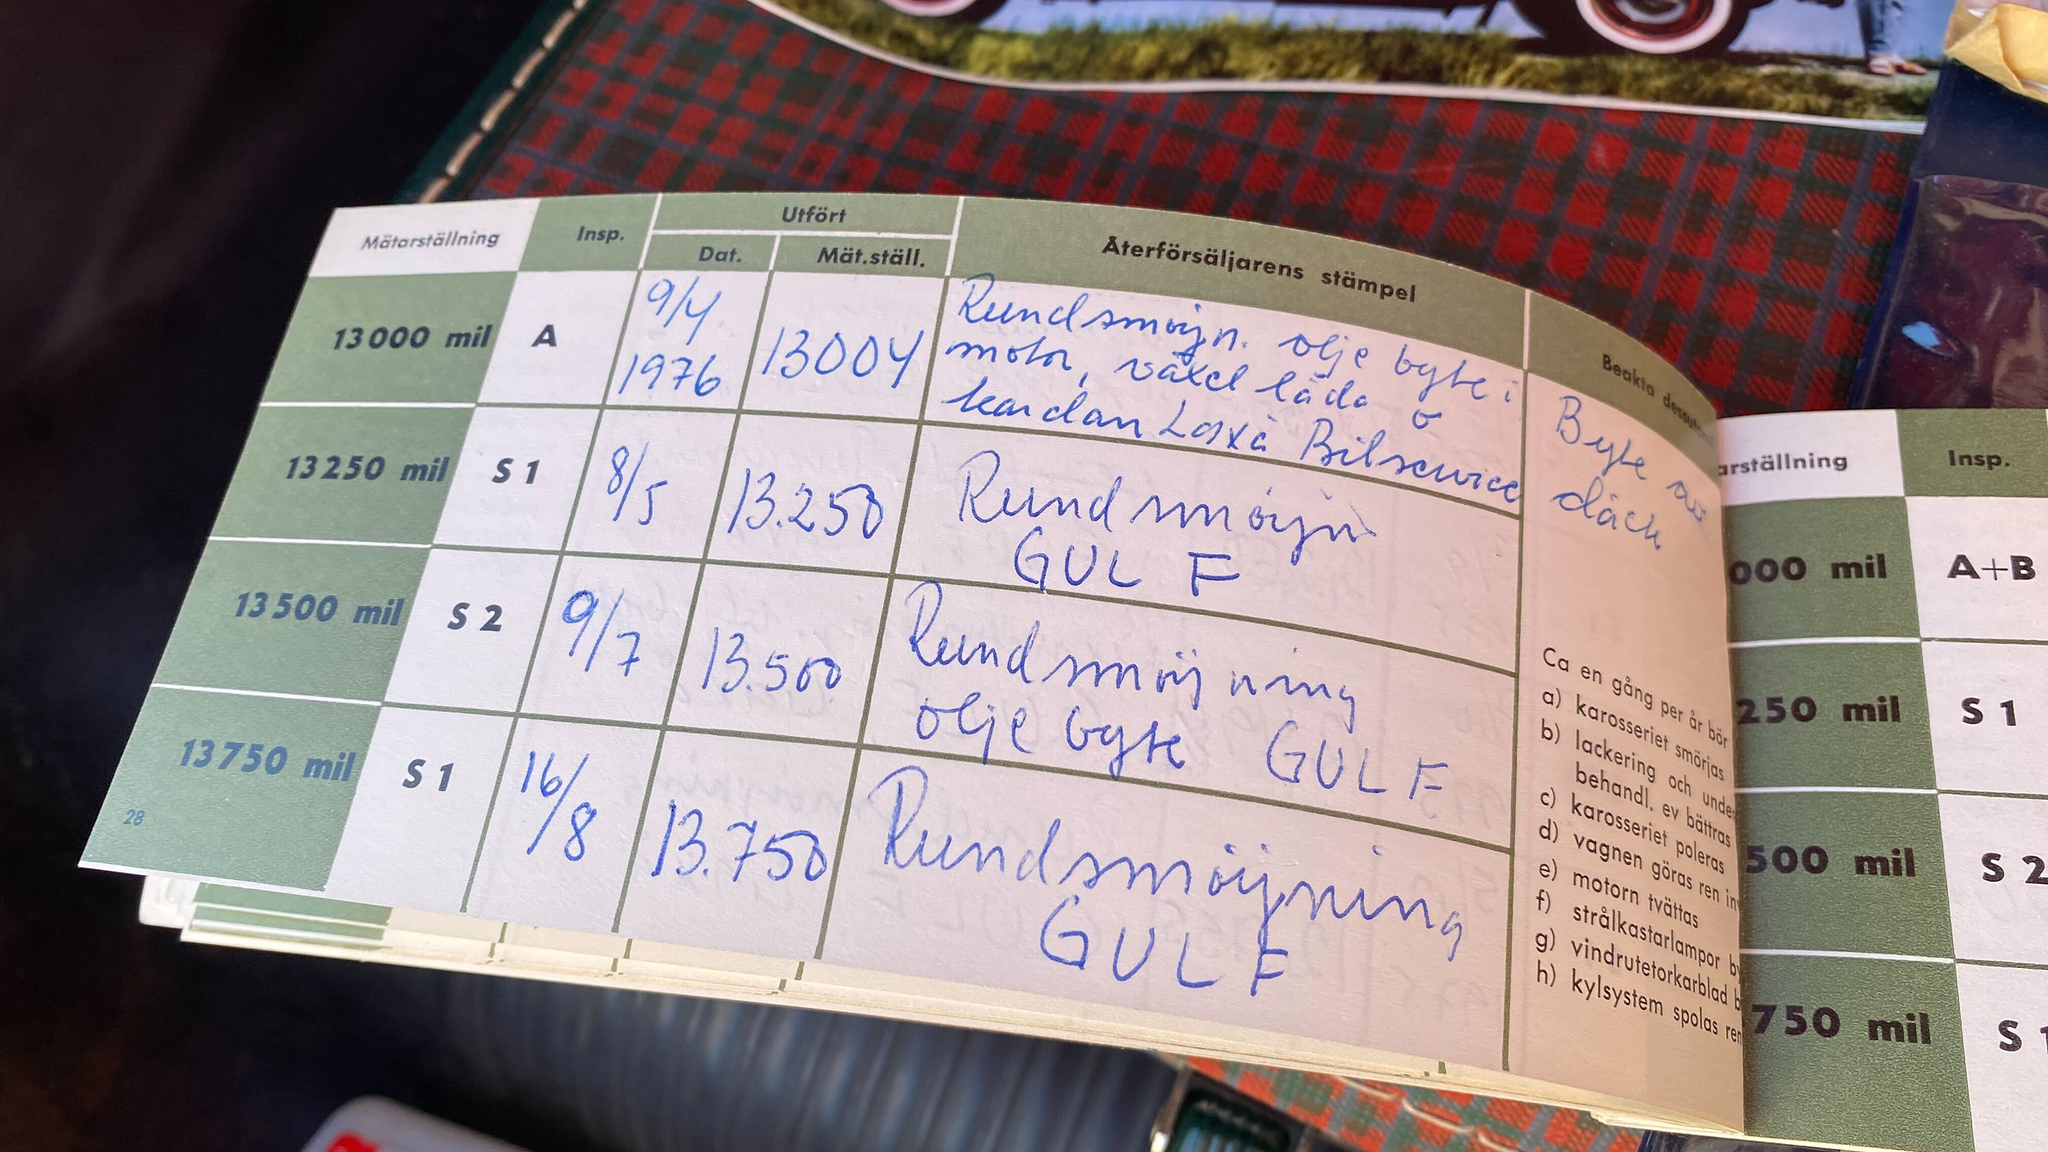 Mätarställning Insp. Utfört Återförsäljarens stämpel Beakta
Dat. Mät.ställ.
13000 mil A 9/4 1976 13004
Rundsmöijn. olje byte i
motor, växel låda o
kardan Laxå Bilservice
Byte av
däck
13250 mil S 1 8/5 13.250
Rundsmöijn
GULF
13500 mil S 2 9/7 13.500
Rundsmöijning
olje byte GULF
13750 mil S 1 16/8 13.750
Rundsmöijning
GULF
28
Ca en gång per år bör
a) karosseriet smörjas
b) lackering och under
behandl. ev bättras
c) karosseriet poleras
d) vagnen göras ren in
e) motorn tvättas
f) strålkastarlampor by
g) vindrutetorkarblad b
h) kylsystem spolas ren
arställning Insp.
000 mil A+B
250 mil S 1
500 mil S 2
750 mil S 1